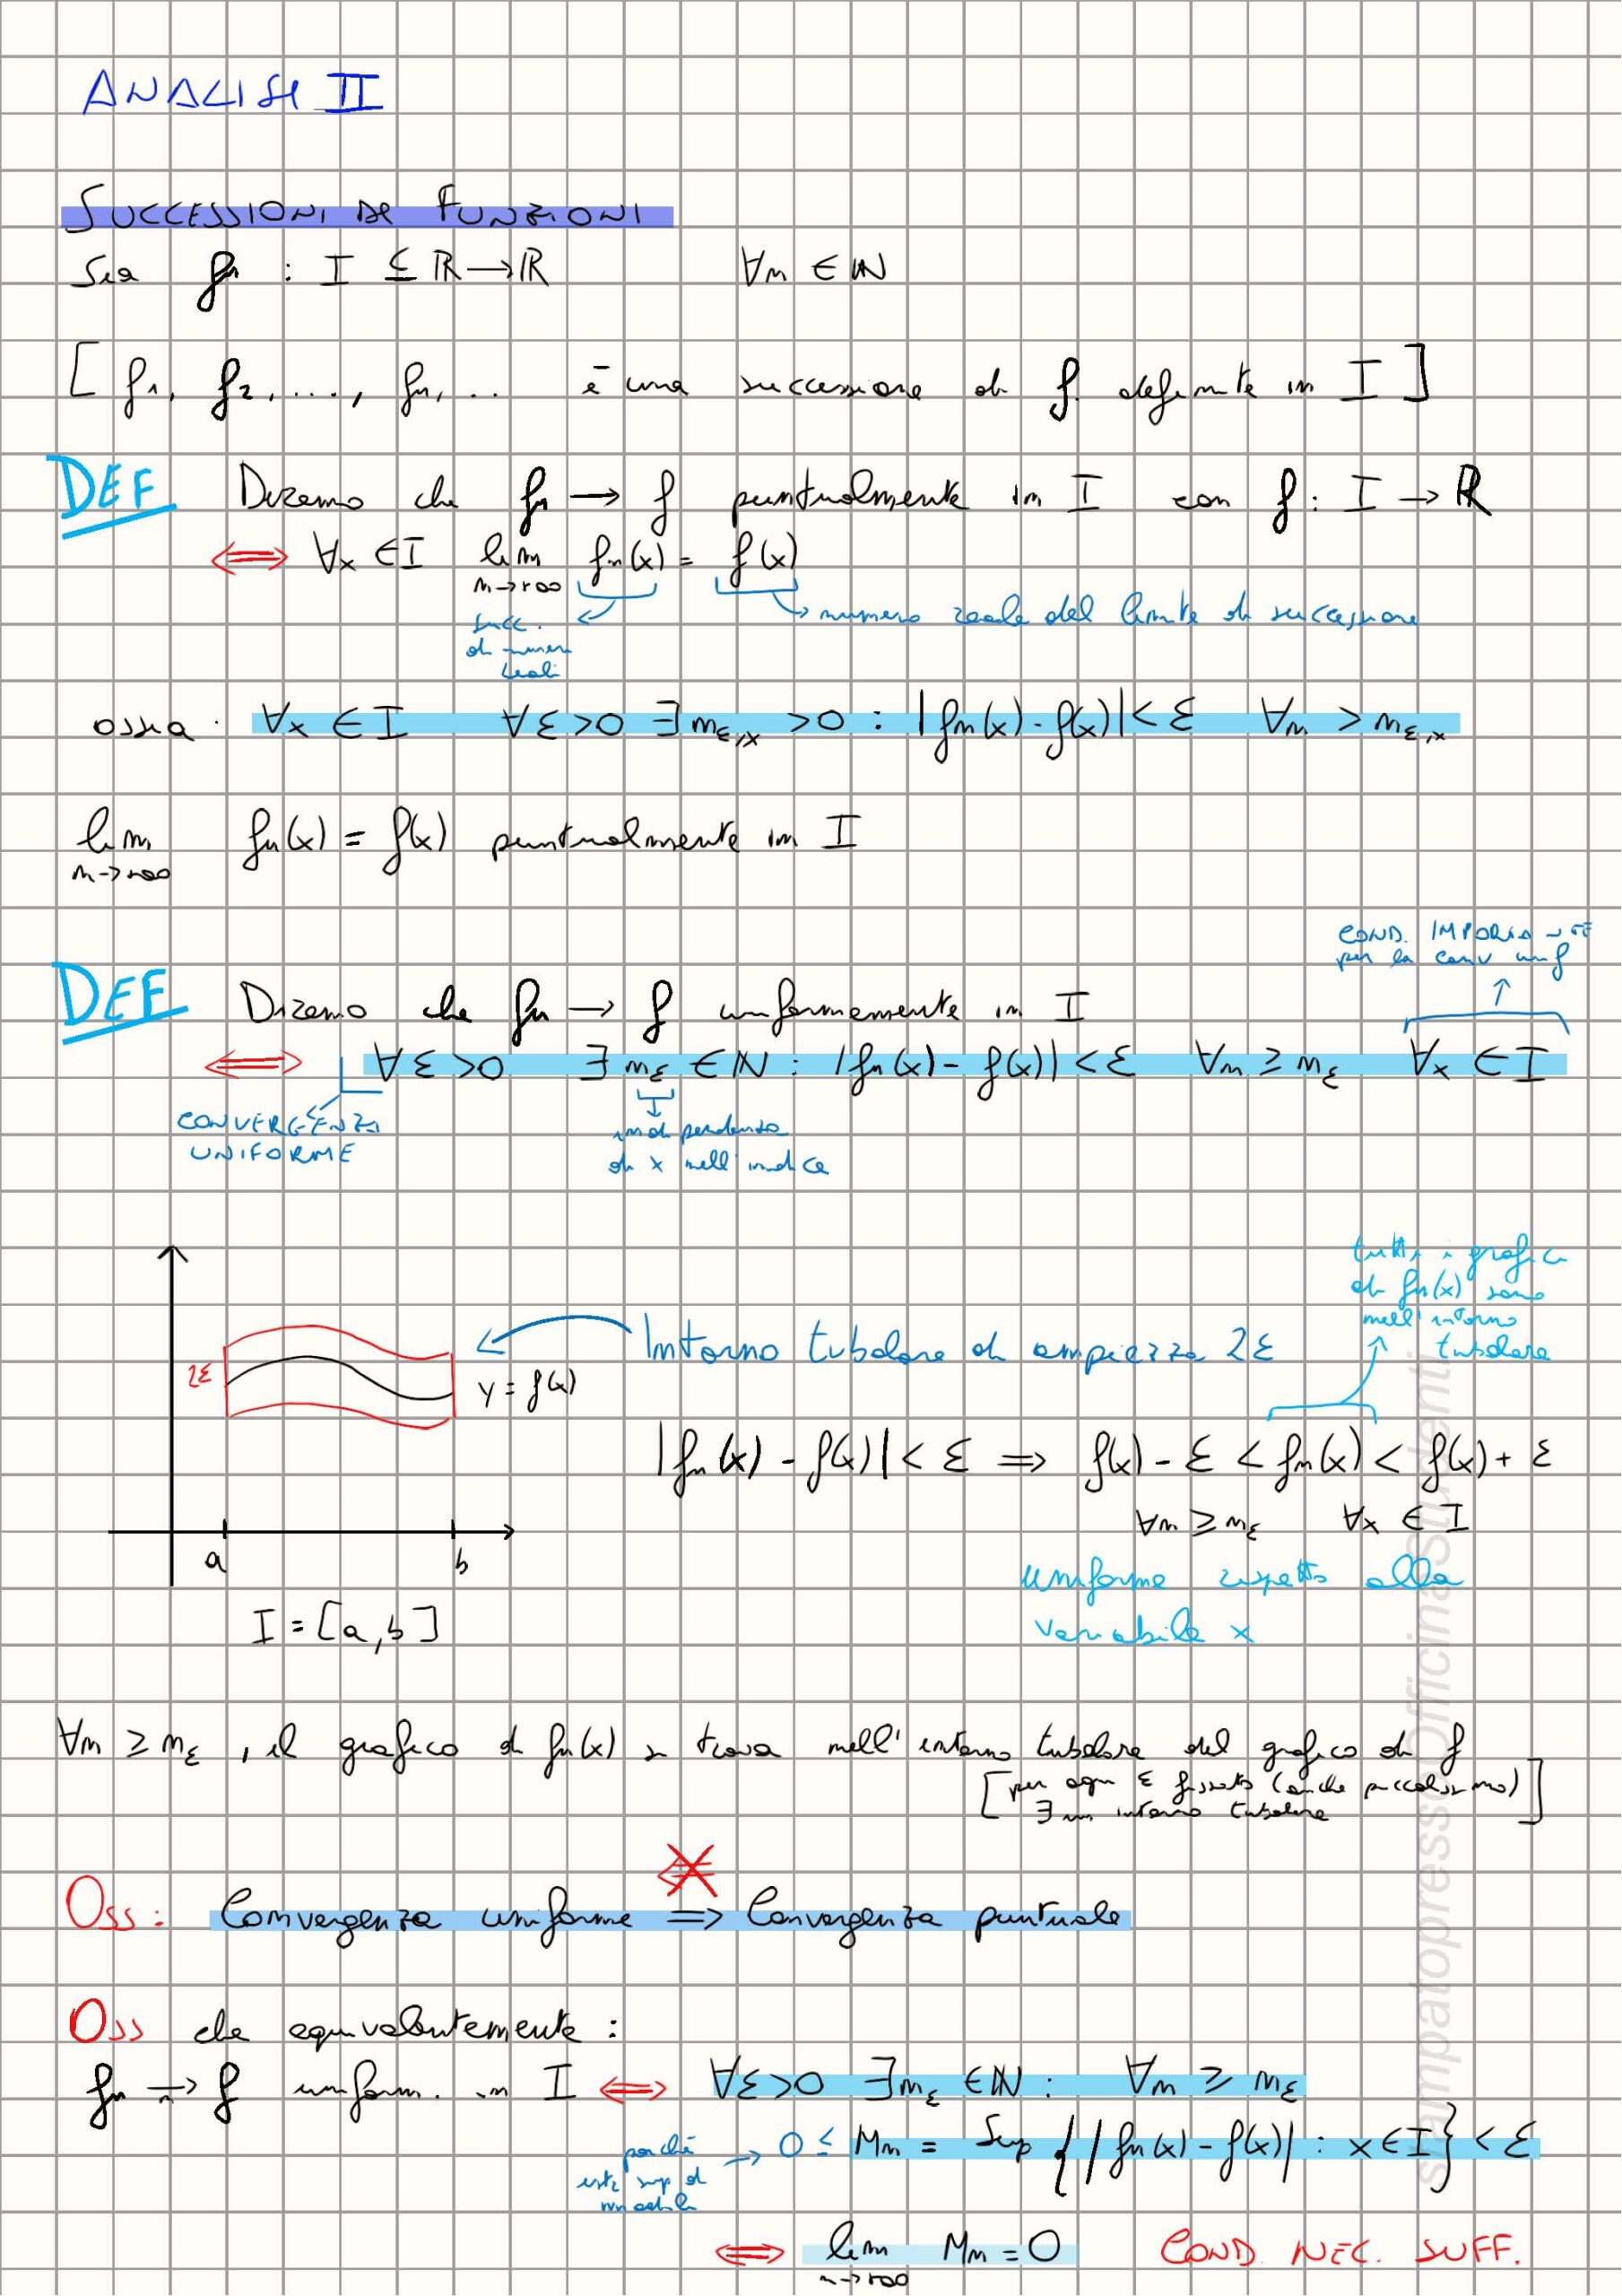 ANALISI II
SUCCESSIONI DI FUNZIONI
Sia fn : I ⊆ ℝ → ℝ ∀n ∈ ℕ
[ f1, f2, ..., fn, .. è una successione di f. definite in I ]
DEF Diremo che fn → f puntualmente in I con f: I → ℝ
⟺ ∀x ∈ I lim fn(x) = f(x)
n→+∞
succ. di numeri reali
numero reale del limite di successione
ossia: ∀x ∈ I ∀ε>0 ∃nε,x >0 : |fn(x) - f(x)| < ε ∀n > nε,x
lim fn(x) = f(x) puntualmente in I
n→+∞
COND. IMPORTANTE
per la conv unif
DEF Diremo che fn → f uniformemente in I
⟺ ∀ε>0 ∃nε ∈ ℕ : |fn(x) - f(x)| < ε ∀n ≥ nε ∀x ∈ I
CONVERGENZA
UNIFORME
indipendenza
di x nell'indice
tutti i grafici
di fn(x) sono
nell'intorno
tubolare
Intorno tubolare di ampiezza 2ε
2ε
y = f(x)
|fn(x) - f(x)| < ε ⟹ f(x) - ε < fn(x) < f(x) + ε
∀n ≥ nε ∀x ∈ I
a b
uniforme rispetto alla
variabile x
I = [a,b]
∀n ≥ nε , il grafico di fn(x) si trova nell'intorno tubolare del grafico di f
[per ogni ε fissato (anche piccolissimo)
∃ un intorno tubolare]
Oss: Convergenza uniforme ⟹ Convergenza puntuale
Oss che equivalentemente :
fn → f uniform. in I ⟺ ∀ε>0 ∃nε ∈ ℕ : ∀n ≥ nε
perché → 0 ≤ Mn = Sup { |fn(x) - f(x)| : x ∈ I } < ε
sup di
⟺ lim Mn = 0 COND. NEC. SUFF.
n→+∞
stampatopressoOfficinaStudenti